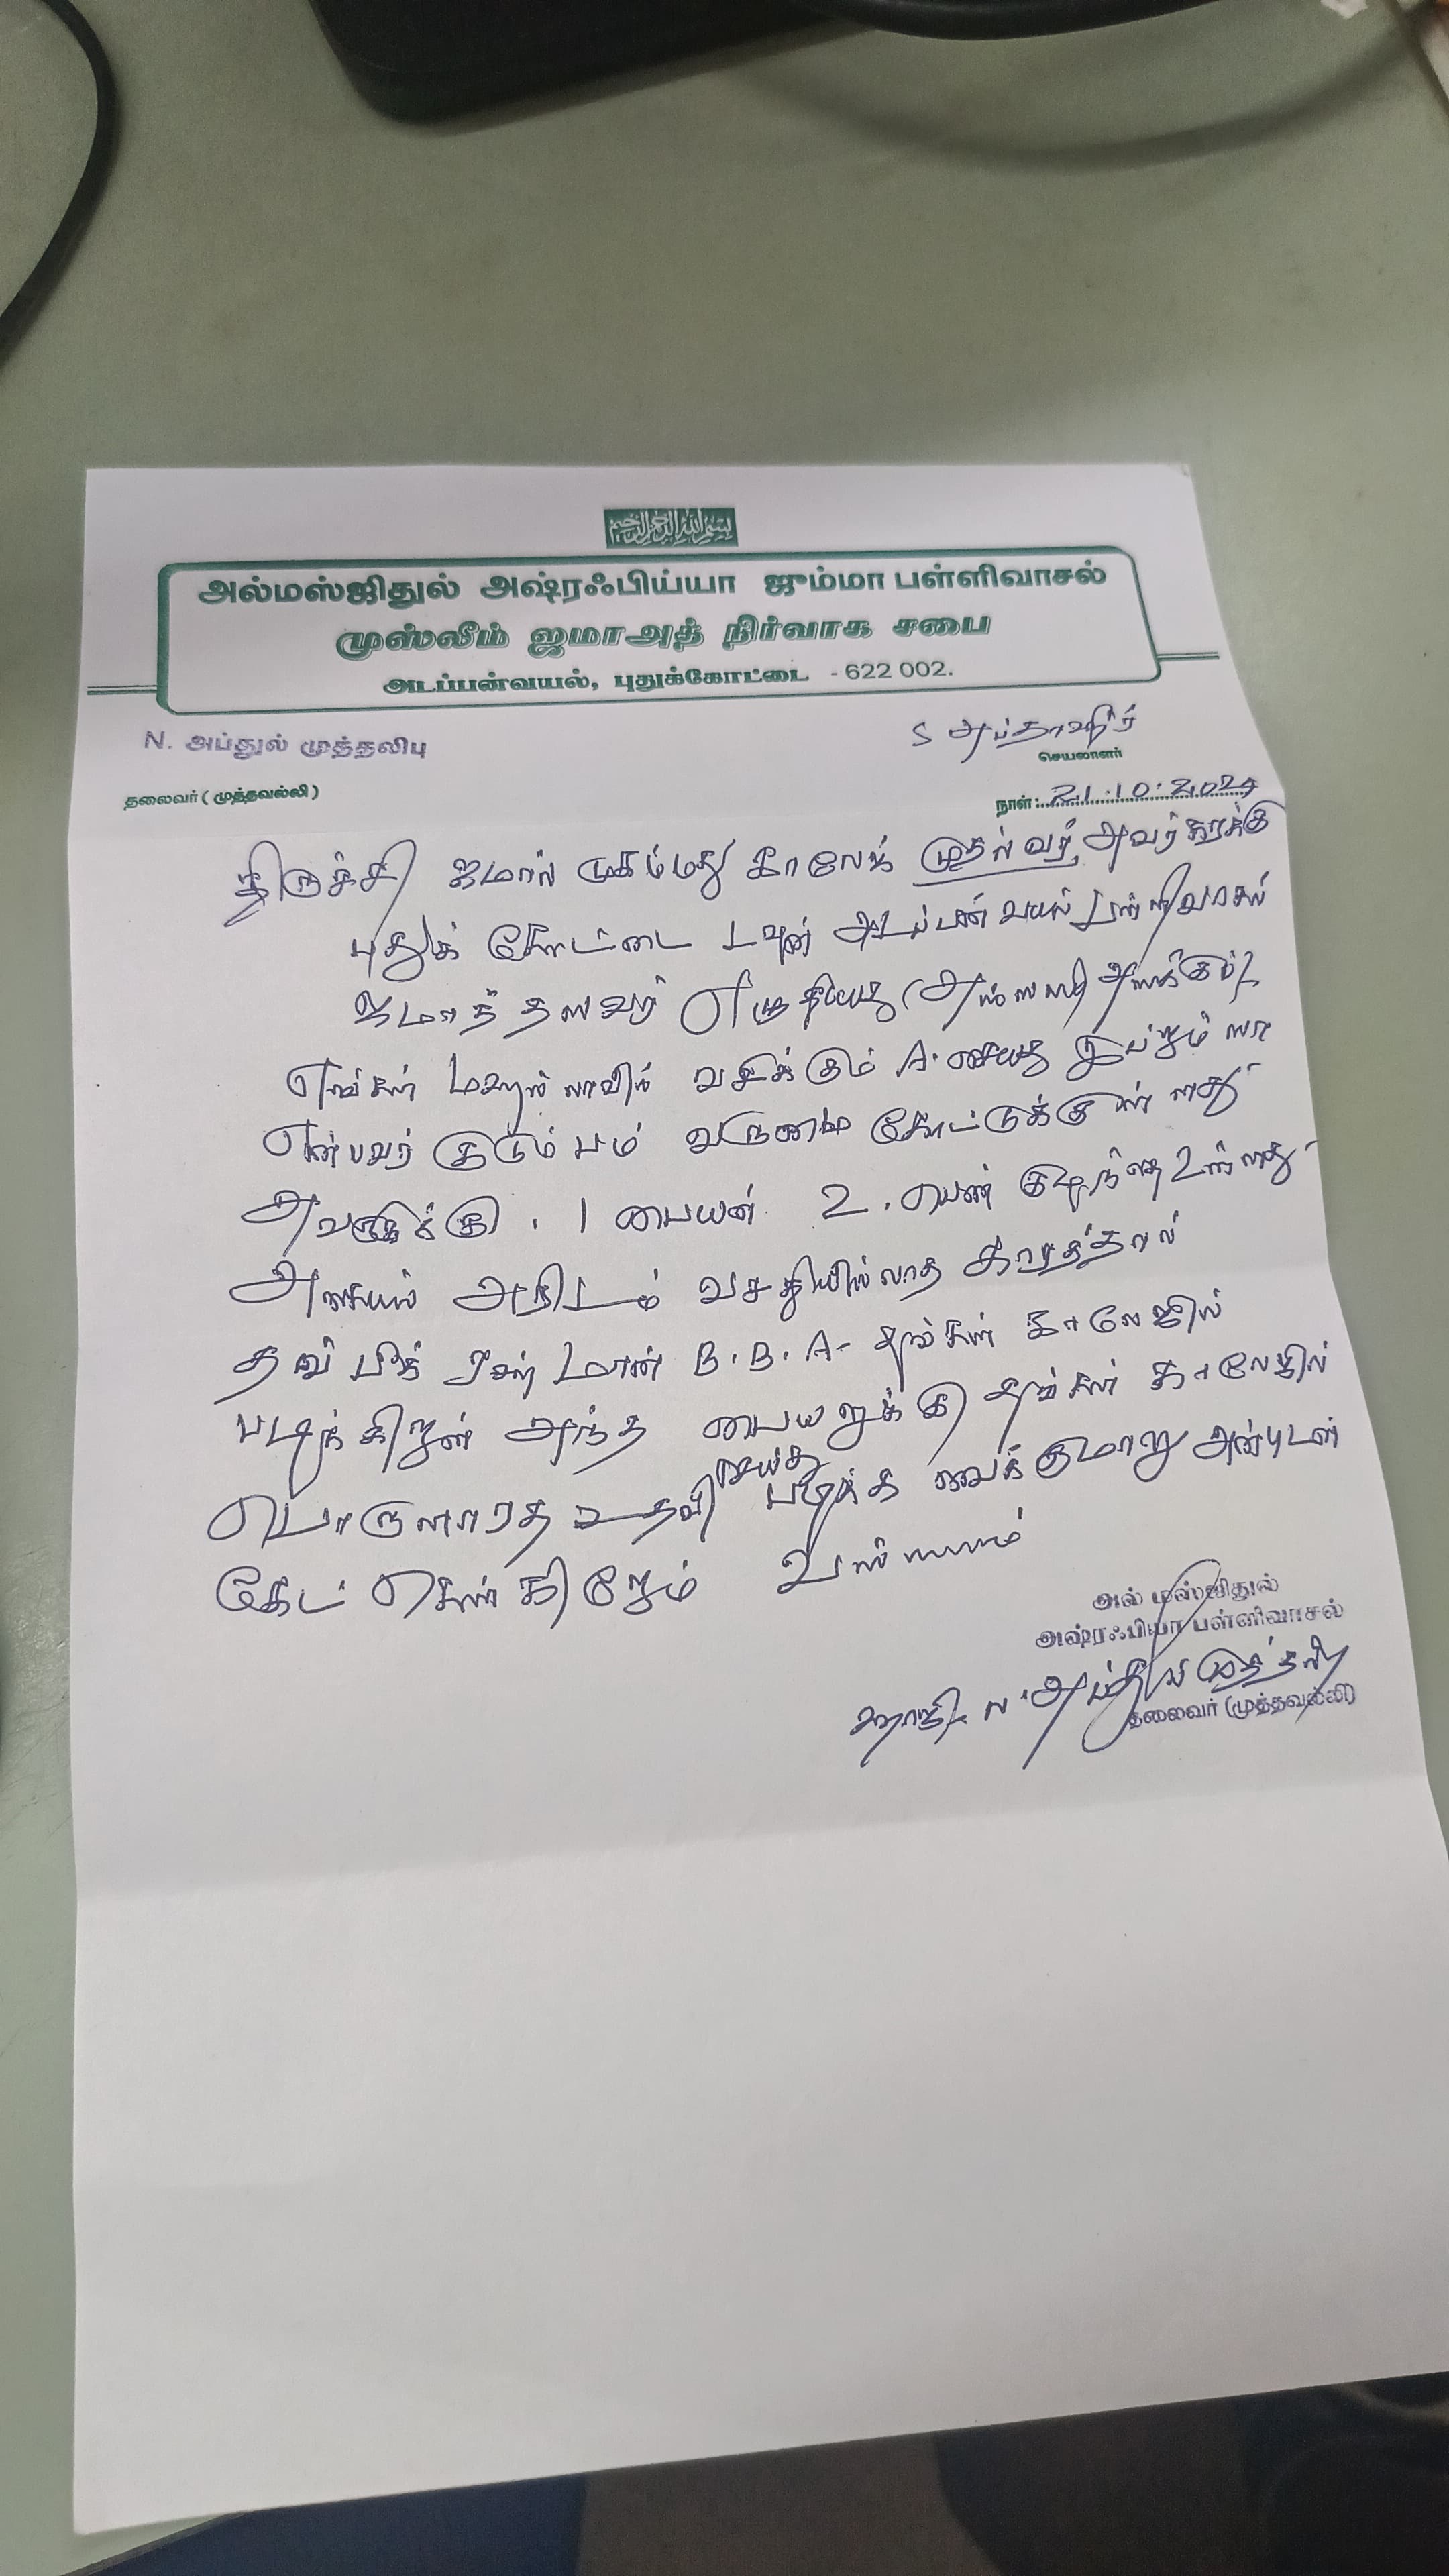 بسم الله الرحمن الرحيم
அல்மஸ்ஜிதுல் அஷ்ரஃபிய்யா ஜும்மா பள்ளிவாசல்
முஸ்லீம் ஜமாஅத் நிர்வாக சபை
அடப்பன்வயல், புதுக்கோட்டை - 622 002.
N. அப்துல் முத்தலிபு
தலைவர் (முத்தவல்லி)
S அப்தாஹிர்
செயலாளர்
நாள்: 21.10.2024
திருச்சி ஜமால் முகம்மது காலேஜ் முதல்வர் அவர்களுக்கு
புதுக் கோட்டை டவுன் அடப்பன் வயல் பள்ளிவாசல்
ஜமாத் தலைவர் எழுதியது (அஸ்ஸலாமு அலைக்கும்)
எங்கள் மஹல்லாவில் வசிக்கும் A. சையது இப்றாம்ஸா
என்பவர் குடும்பம் வறுமை கோட்டுக்குள்ளது
அவருக்கு . 1 பையன் 2 . பெண் குழந்தை உள்ளது
அகையல் அநிடம் வசதியில்லாத காரத்தால்
தவ்பீக் ரகுமான் B.B.A- தங்கள் காலேஜில்
படிக்கிறான் அந்த பையனுக்கு தங்கள் காலேஜில்
பொருளாரத உதவி செய்து படிக்க வைக்குமாறு அன்புடன்
கேட் கொள்கிறோம் வஸ்ஸலாம்
அல் மஸ்ஜிதுல்
அஷ்ரஃபியா பள்ளிவாசல்
ஹாஜி. N. அப்துல் முத்தலிபு
தலைவர் (முத்தவல்லி)